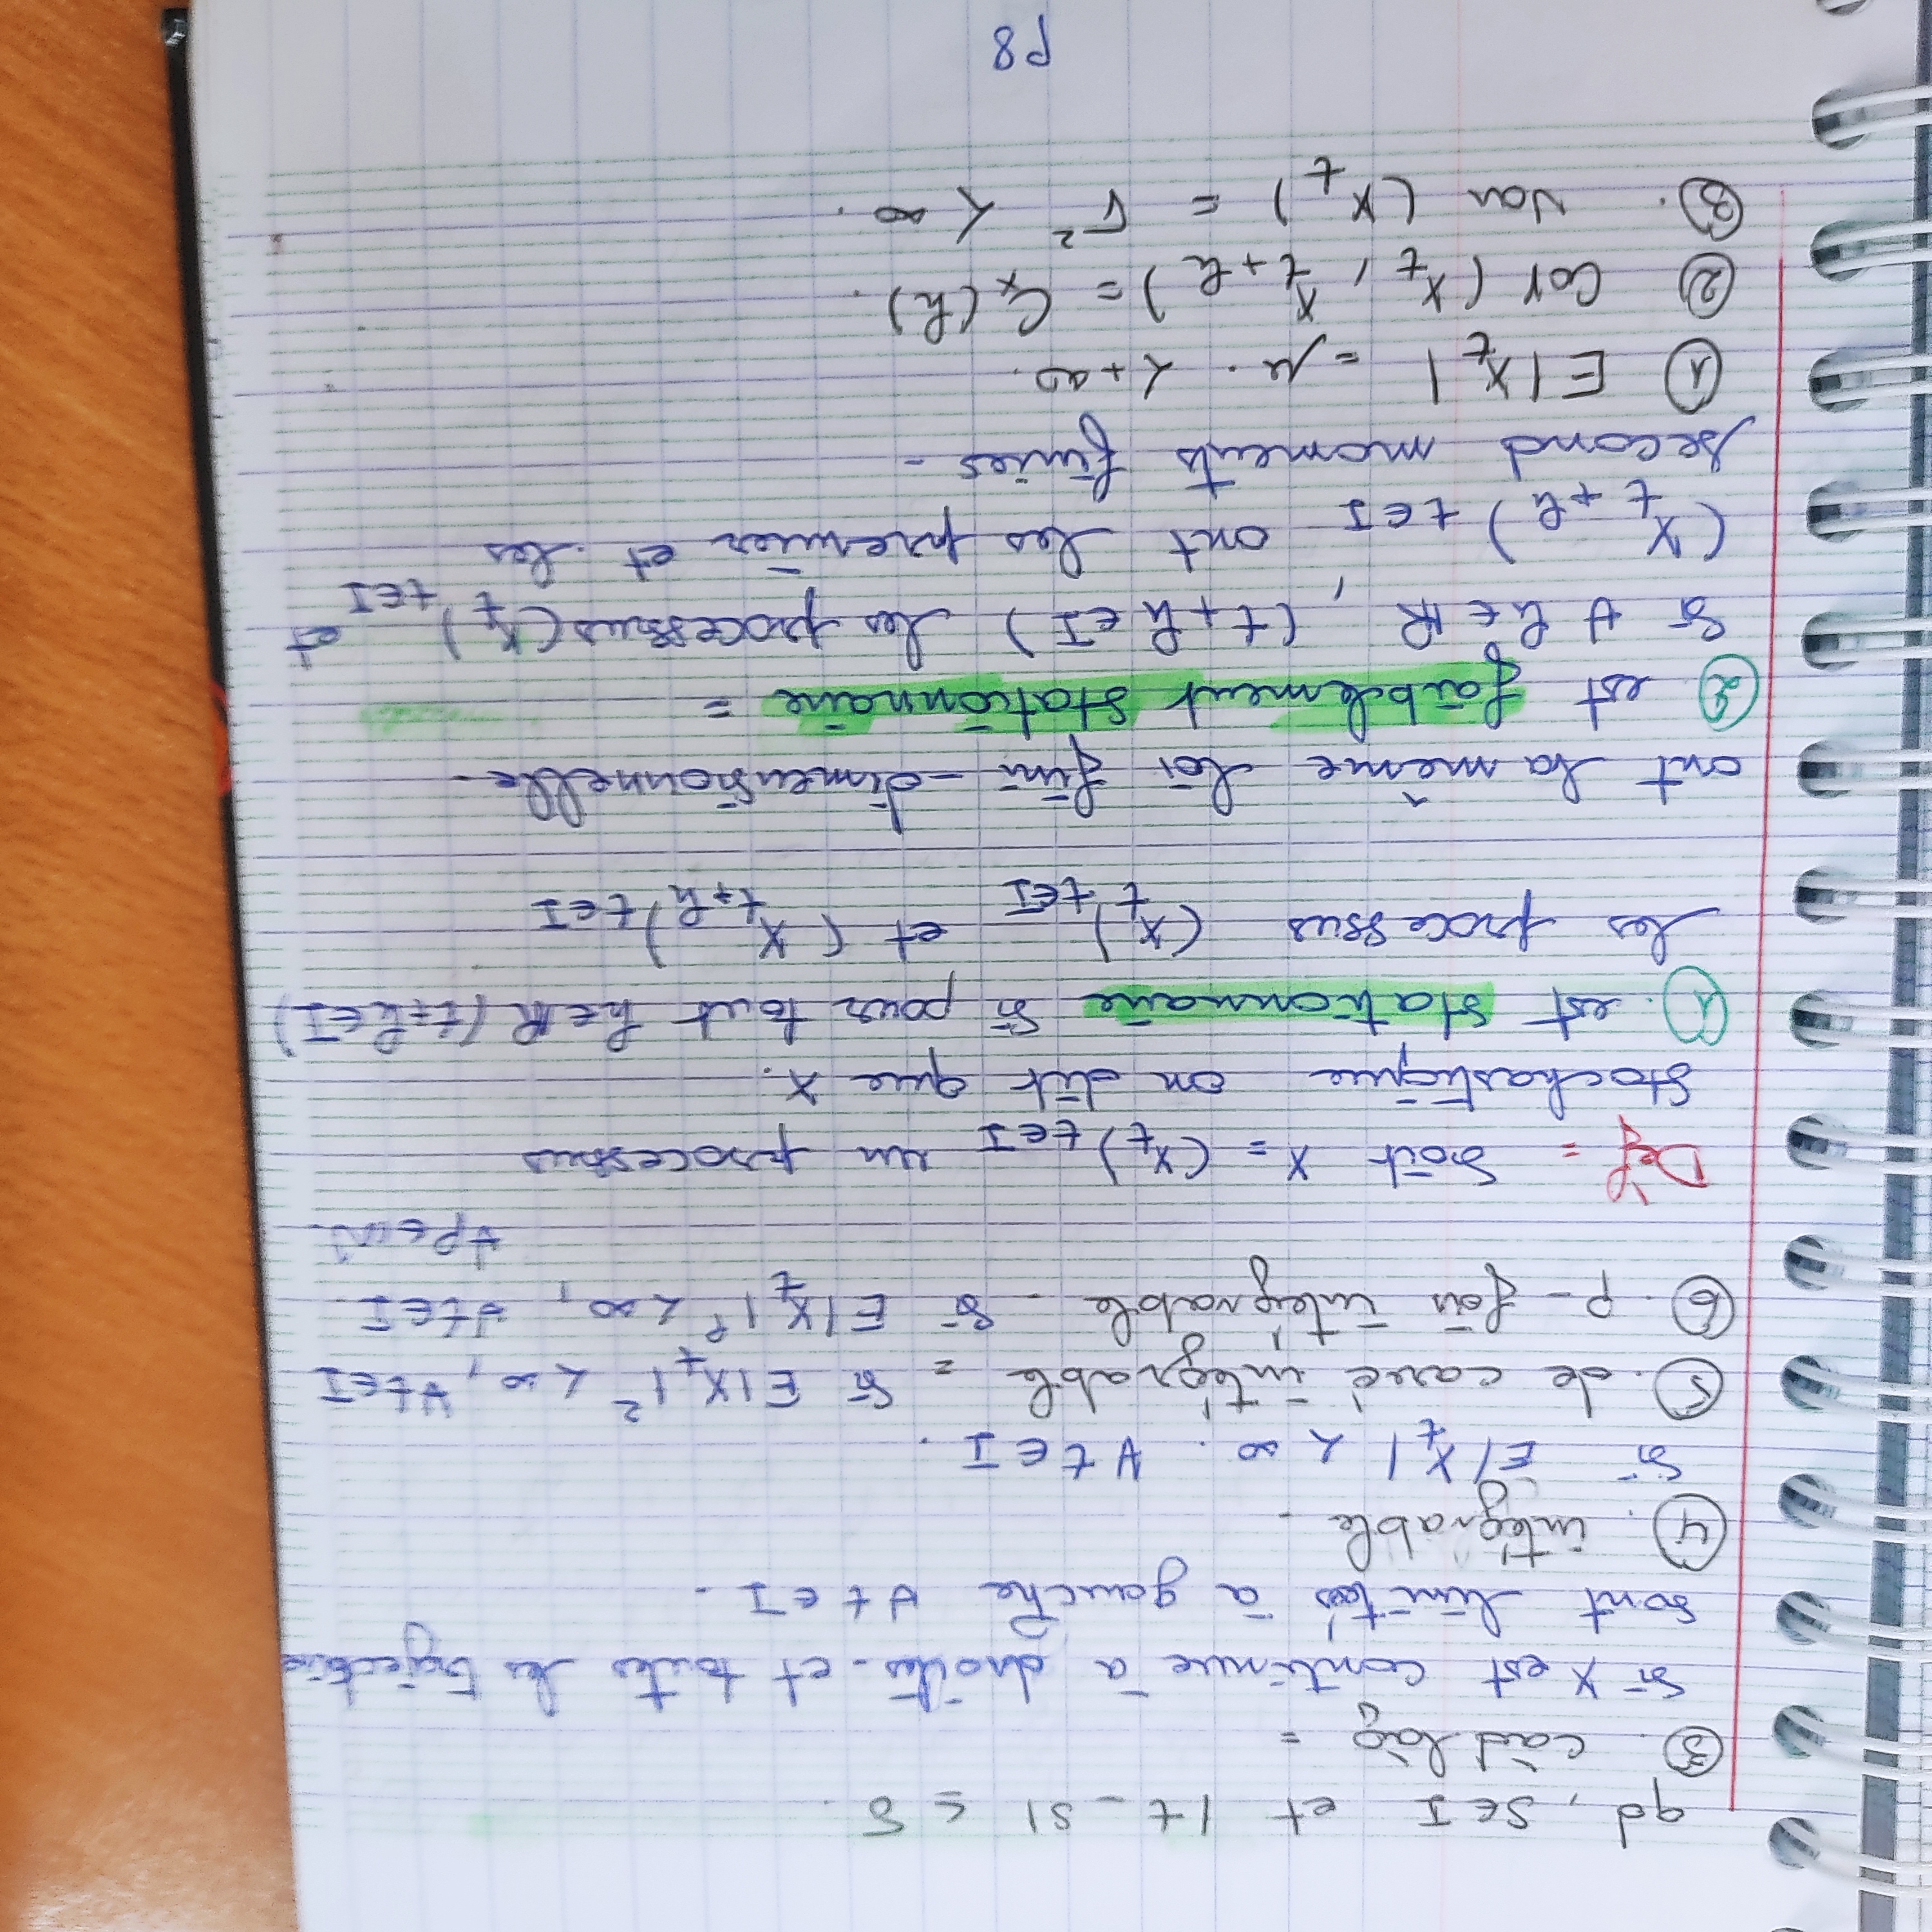 qd, s∈I et |t - s| ≤ δ.
③. càd làg =
Si X est continue à droites. et toutes les trajectoire
sont limités à gauche ∀t∈I.
④. intégrable.
Si E|X_t| < ∞. ∀t∈I.
⑤. de carré intégrable = Si E|X_t|² < ∞, ∀t∈I
⑥. p- fois intégrable. Si E|X_t|^p < ∞, ∀t∈I.
∀p∈ℕ.
Dèf = Soit X = (X_t)_{t∈I} un processus
Stochastique on dit que X.
①. est stationnaire Si pour tout h∈ℝ (t+h∈I)
les processus (X_t)_{t∈I} et (X_{t+h})_{t∈I}
ont la même loi fini-dimensionnelle.
② est faiblement stationnaire =
Si ∀h∈ℝ, (t+h∈I) les processus (X_t)_{t∈I} et
(X_{t+h})_{t∈I} ont les premier et les
second moments finies.
① E|X_t| = μ. < +∞.
② Cov (X_t, X_{t+h}) = C_x(h).
③. Var (X_t) = σ² < ∞.
P8